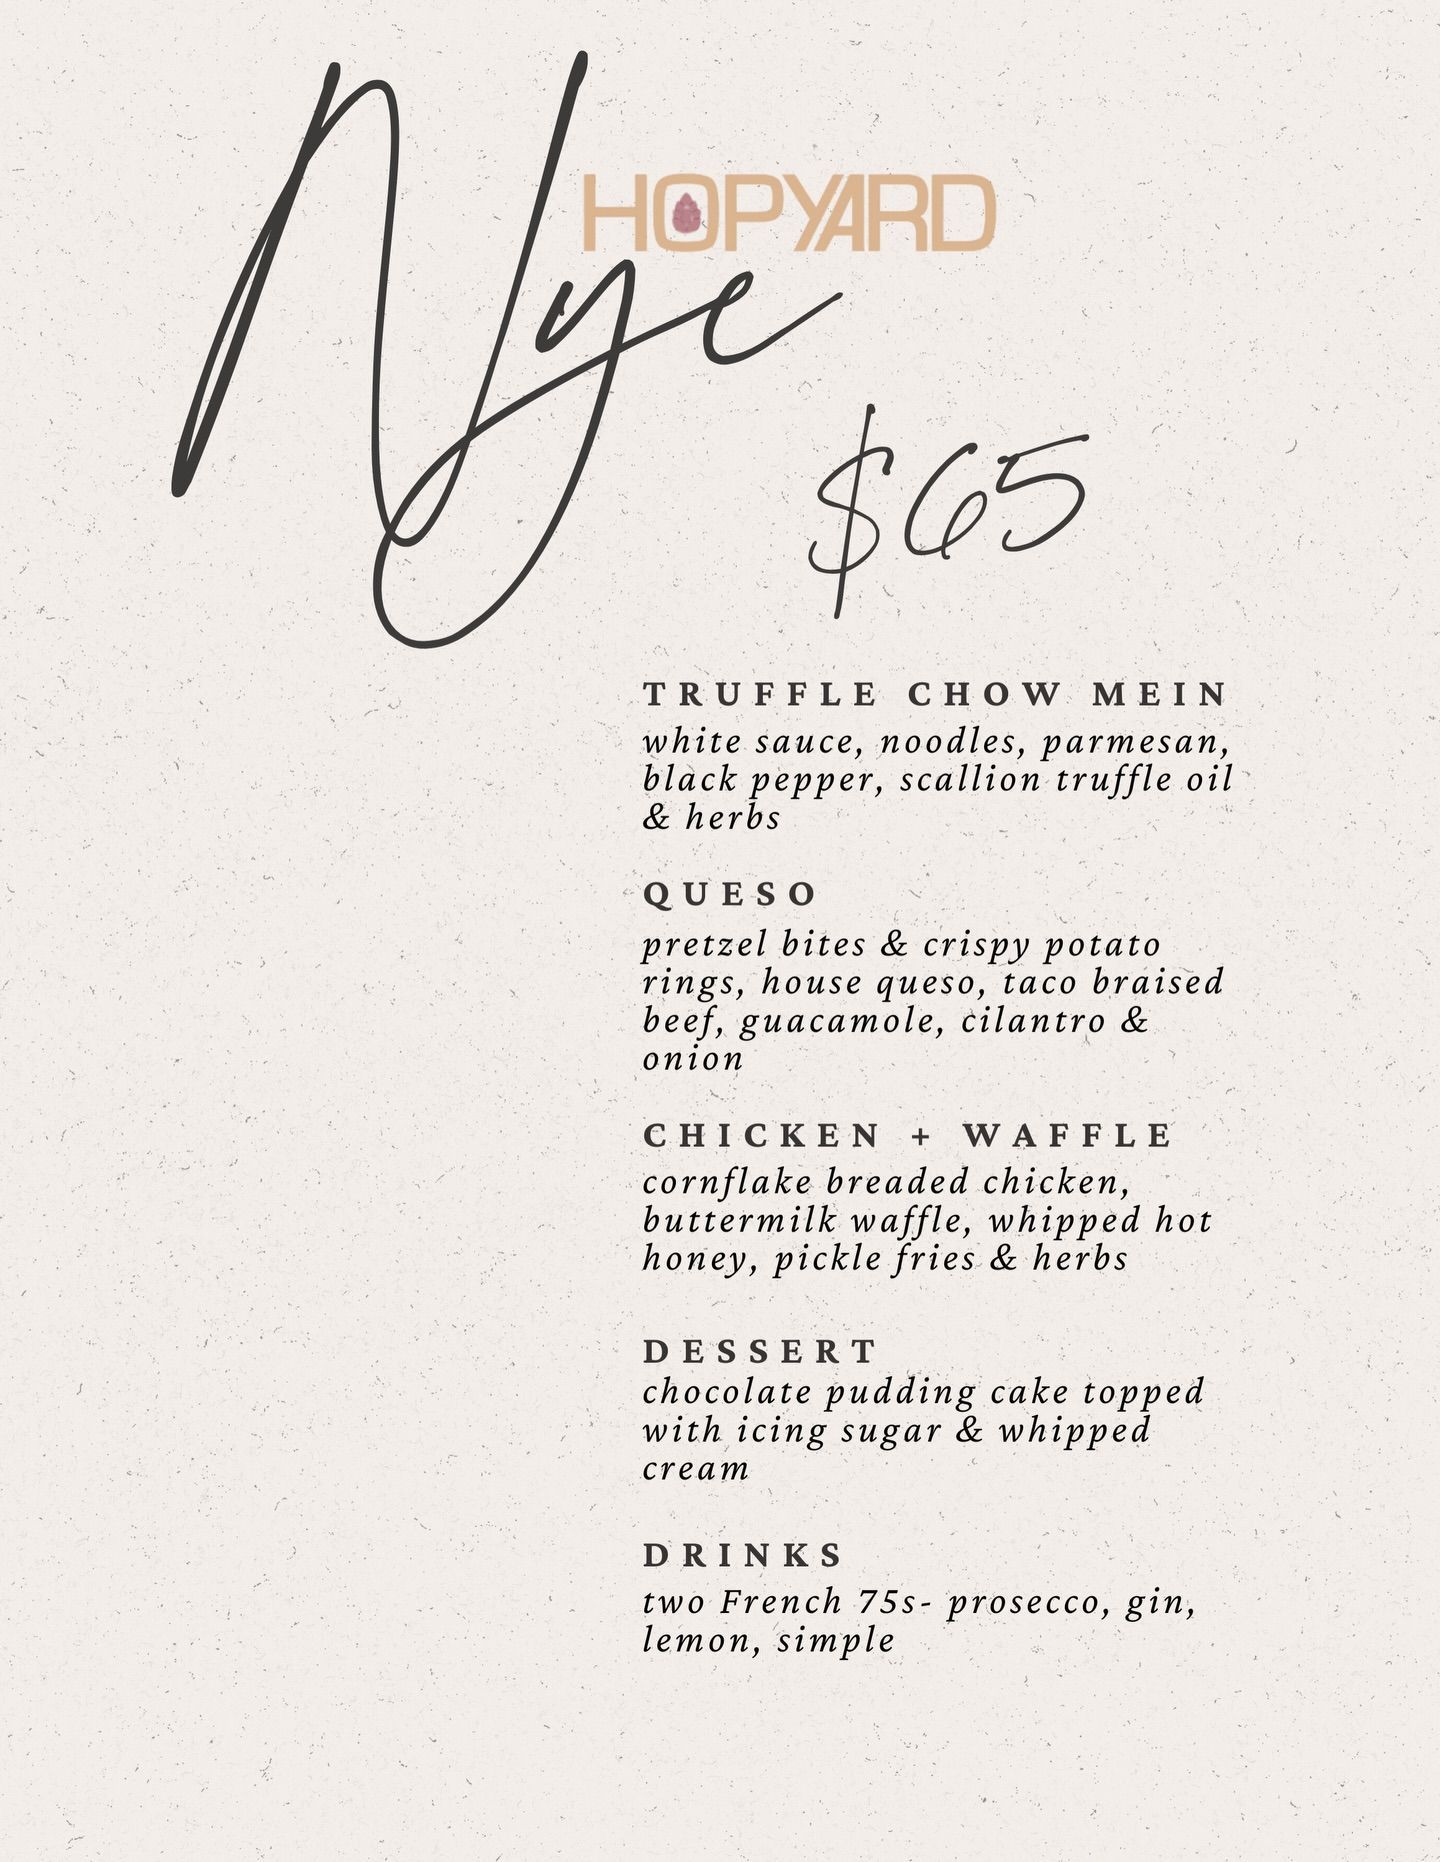 Nye
HOPYARD
$65
TRUFFLE CHOW MEIN
white sauce, noodles, parmesan,
black pepper, scallion truffle oil
& herbs
QUESO
pretzel bites & crispy potato
rings, house queso, taco braised
beef, guacamole, cilantro &
onion
CHICKEN + WAFFLE
cornflake breaded chicken,
buttermilk waffle, whipped hot
honey, pickle fries & herbs
DESSERT
chocolate pudding cake topped
with icing sugar & whipped
cream
DRINKS
two French 75s- prosecco, gin,
lemon, simple